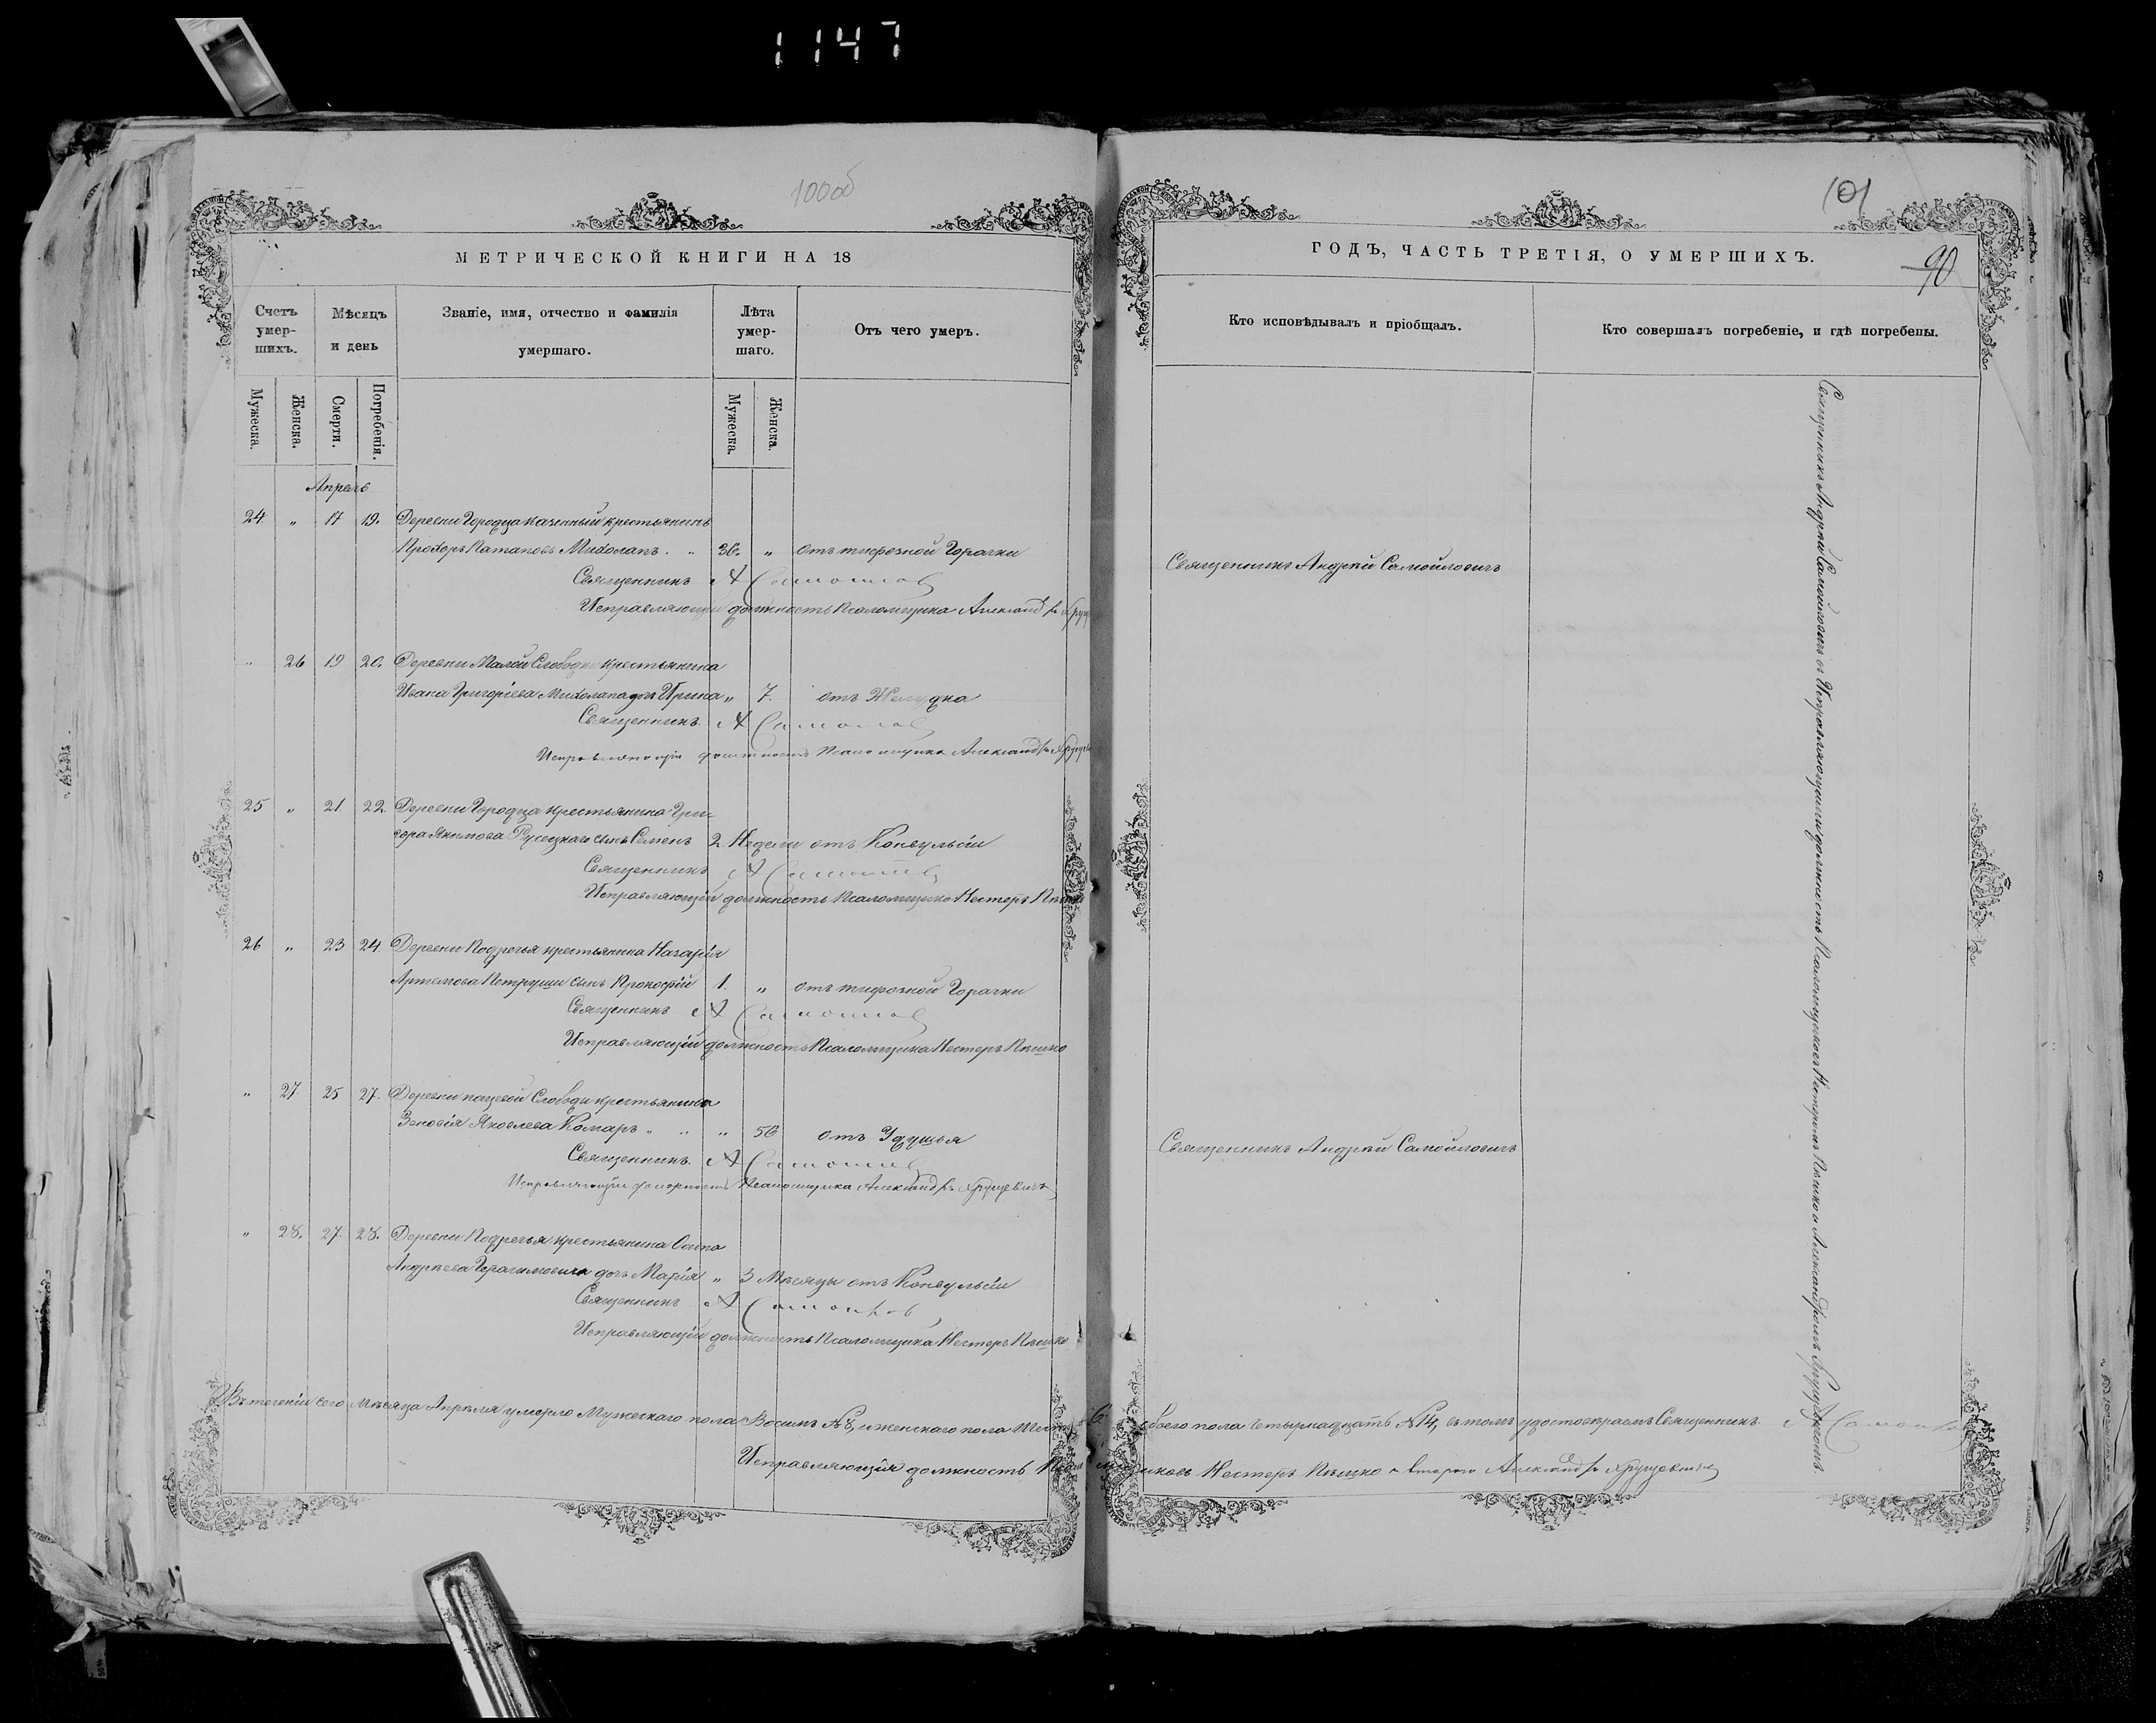 1147
100об
МЕТРИЧЕСКОЙ КНИГИ НА 18
Счетъ умер-шихъ.
Мѣсяцъ и день
Званіе, имя, отчество и фамилія умершаго.
Лѣта умер-шаго.
Отъ чего умеръ.
Мужеска.
Женска.
Смерти.
Погребенія.
Мужеска.
Женска.
Апрель
24 „ 17 19. Деревни Городца казенный крестьянинъ
Прохоръ Патаповъ Михолапъ . „ 36. „ отъ тифозной Горачки
Священникъ А Самойлов
Исправляющій должность Псаломщика Александръ
„ 26 19 20. Деревни Малой Слободы крестьянина
Ивана Григоріева Михолапа дочь Ирина „ 7. отъ Желудка
Священникъ. А Самойлов
Исправляющій должность Псаломщика Александръ
25 „ 21 22. Деревни Городца крестьянина Гри-
гора Якимова Русецкаго сынъ Семенъ 2 Недели отъ Конвульсіи
Священникъ А
Исправляющій должность Псаломщика Нестеръ
26 „ 23 24. Деревни Подречья крестьянина Назарія
Артемова Петруши сынъ Прокофій 1. „ отъ тифозной Горачки
Священникъ А Самойлов
Исправляющій должность Псаломщика Нестеръ Пѣшко
„ 27 25 27. Деревни Слободы крестьянина
Зеновія Яковлева Комаръ „ „ „ 56 отъ Удушья
Священникъ. А
Исправляющій должность Псаломщика Александръ Хруцевичъ
„ 28. 27. 28. Деревни Подречья крестьянина Осипа
Андреева Герасимовича дочь Марія „ 3 Мѣсяцы отъ Конвульсіи
Священникъ А
Исправляющій должность Псаломщика Нестеръ Пѣшко
Въ теченіи сего мѣсяца Апрѣля умерло Мужескаго пола Восимъ №8, и женскаго пола
Исправляющія должность
101
90
ГОДЪ, ЧАСТЬ ТРЕТІЯ, О УМЕРШИХЪ.
Кто исповѣдывалъ и пріобщалъ.
Кто совершалъ погребеніе, и гдѣ погребены.
Священникъ Андрей Самойловичъ
Священникъ Андрей Самойловичъ
Священникъ Андрей Самойловичъ съ Исправляющими должность Нестеромъ Пѣшко и Александромъ Хруцевичемъ
обоего пола четырнадцать №14, въ томъ удостоверяемъ Священникъ. А
Нестеръ Пѣшко и второго Александръ Хруцевичъ